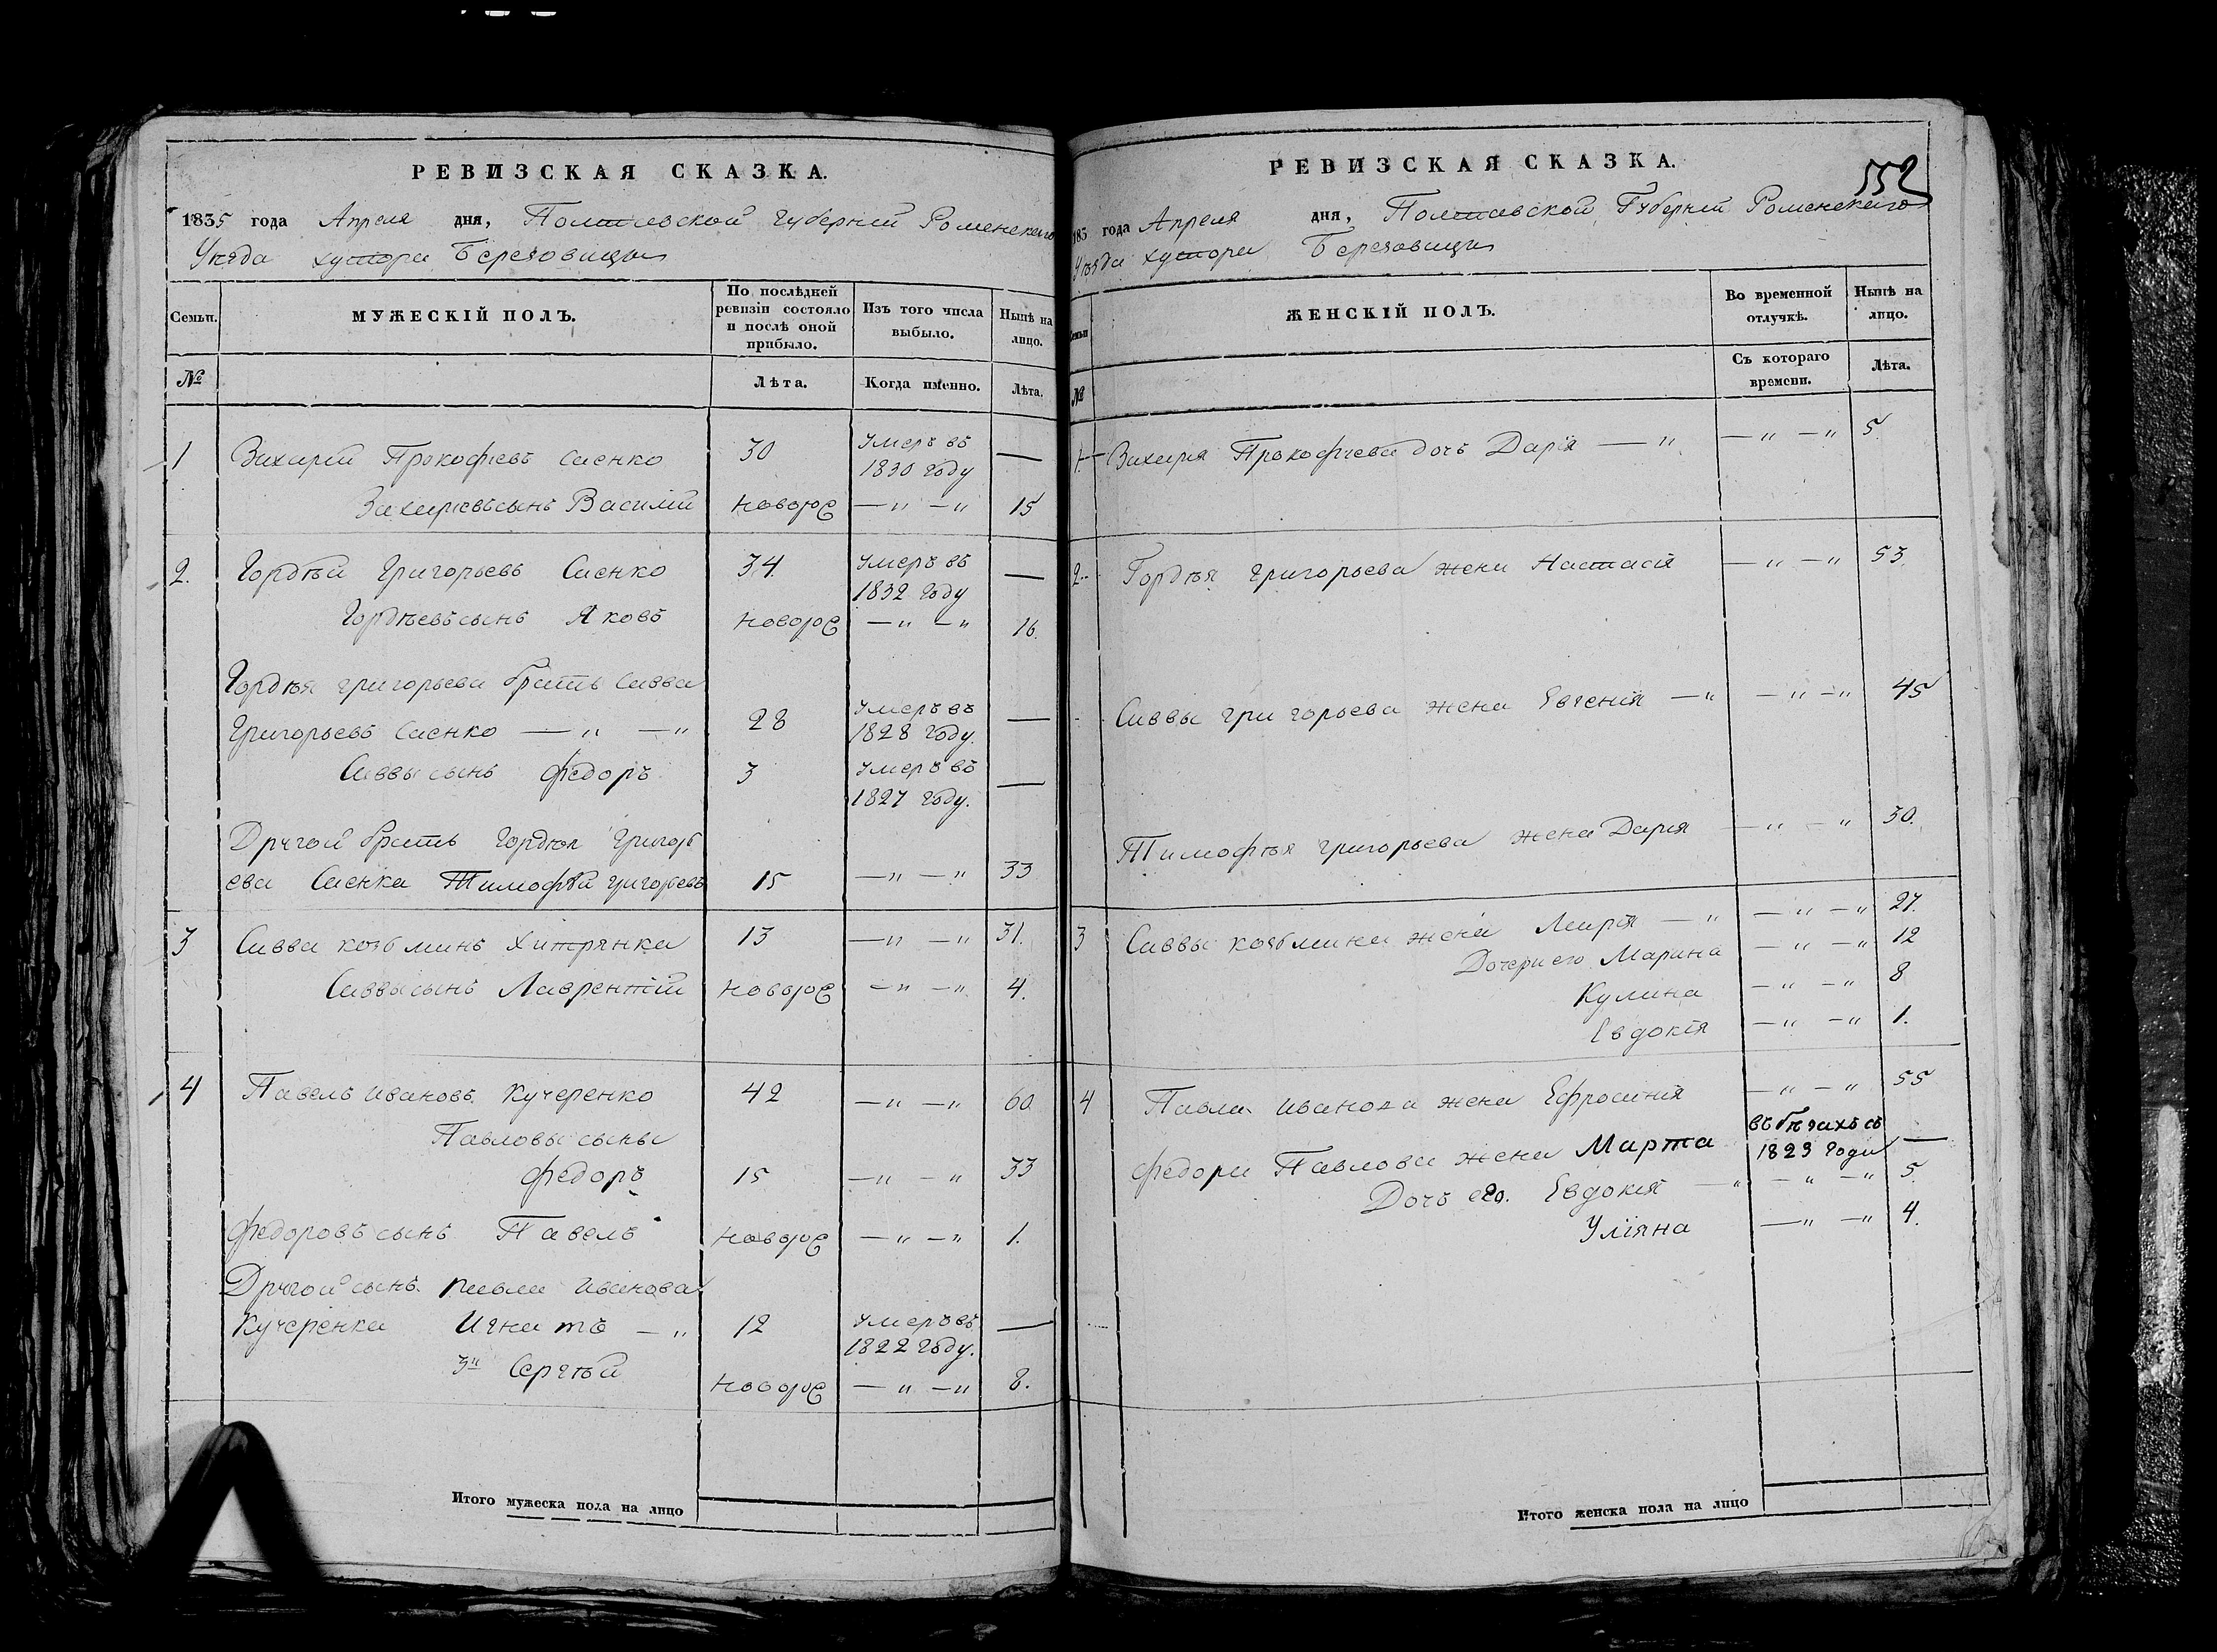 РЕВИЗСКАЯ СКАЗКА.
1835 года Апреля дня, Полтавской Губерніи Роменскаго
Уезда хутора Березовицы
Семьи.
МУЖЕСКІЙ ПОЛЪ.
По послѣдней ревизіи состояло и послѣ оной прибыло.
Изъ того числа выбыло.
Нынѣ на лицо.
№
Лѣта.
Когда именно.
Лѣта.
1 Захарій Прокофіевъ Саенко 30 Умеръ въ 1830 году —
Захаріевъ сынъ Василій новорож —„ —„ 15
2. Гордѣй Григорьевъ Саенко 34. Умеръ въ 1832 году —
Гордѣевъ сынъ Яковъ новорож —„ —„ 16.
Гордѣя Григорьева братъ Савва
Григорьевъ Саенко —„ —„ 28 Умеръ въ 1828 году. —
Саввы сынъ Федоръ 3 Умеръ въ 1827 году. —
Другой братъ Гордѣя Григорь
ева Саенка Тимофѣй Григорьевъ 15 —„ —„ 33
3 Савва Козьминъ Хитрянка 13 —„ —„ 31.
Саввы сынъ Лаврентій новорож —„ —„ 4.
4 Павелъ Ивановъ Кучеренко 42 —„ —„ 60
Павловы сыны
Федоръ 15 —„ —„ 33
Федоровъ сынъ Павелъ новорож —„ —„ 1.
Другой сынъ Павла Иванова
Кучеренка Игнатъ —„ 12 Умеръ въ 1822 году. —
3й Сергѣй новорож —„ —„ 8.
Итого мужеска пола на лицо
552
РЕВИЗСКАЯ СКАЗКА.
183 года Апреля дня, Полтавской Губерніи Роменскаго
Уѣзда хутора Березовицы
Семьи
ЖЕНСКІЙ ПОЛЪ.
Во временной отлучкѣ.
Нынѣ на лицо.
№
Съ котораго времени.
Лѣта.
1. Захарія Прокофіева дочь Дарія —„ —„ —„ 5.
2. Гордѣя Григорьева жена Настасія —„ —„ 53.
Саввы Григорьева жена Евгенія —„ —„ —„ 45
Тимофѣя Григорьева жена Дарія —„ —„ 30.
3 Саввы Козьмина жена Марія —„ —„ —„ 27.
Дочери его Марина —„ —„ 12
Кулина —„ —„ 8
Евдокія —„ —„ 1.
4 Павла Иванова жена Ефросинія —„ —„ 55
Федора Павлова жена Марта въ бѣгахъ съ 1829 года —
Дочь его. Евдокія —„ —„ —„ 5.
Уліяна —„ —„ 4.
Итого женска пола на лицо